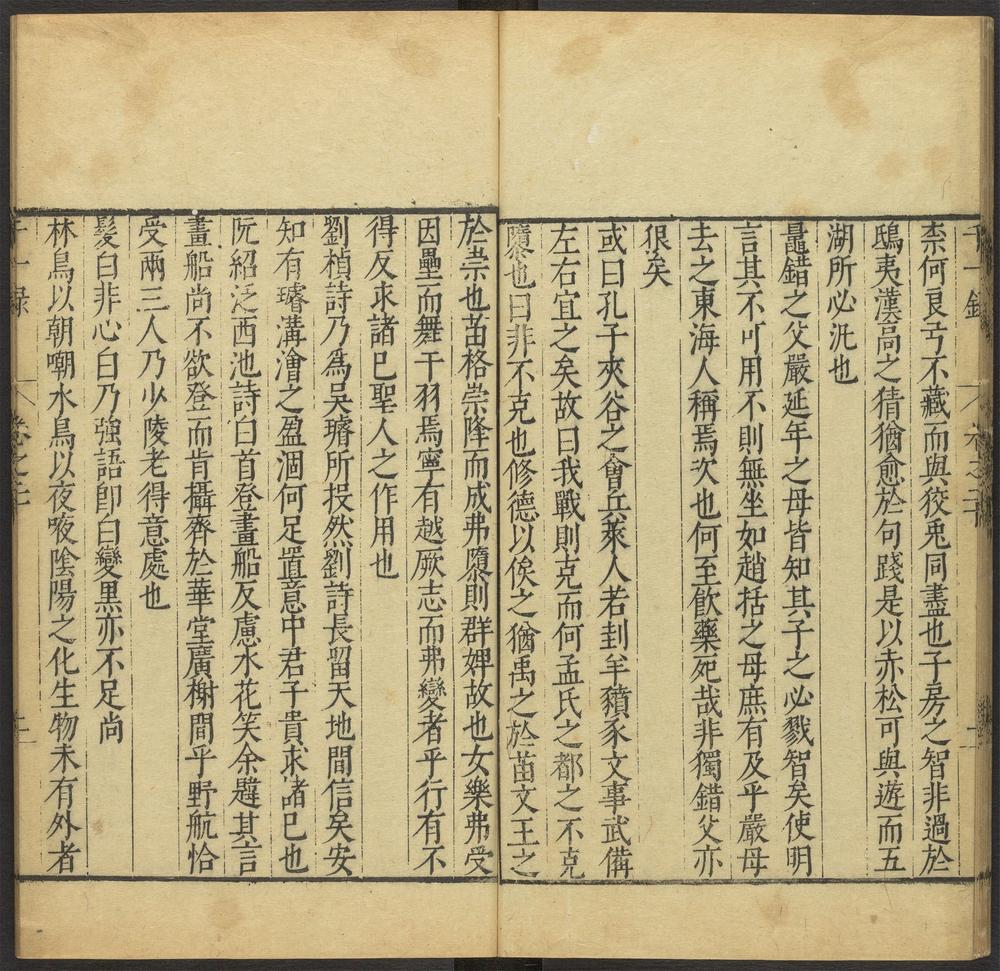 千一錄 卷之二
柰何良弓不藏而與狡兎同盡也子房之智非過於
鴟夷漢高之猜猶愈於句踐是以赤松可與遊而五
湖所必泛也
鼂錯之父嚴延年之母皆知其子之必戮智矣使明
言其不可用不則無坐如趙括之母庶有及乎嚴母
去之東海人稱焉次也何至飮藥死哉非獨錯父亦
很矣
或曰孔子夾谷之會兵萊人若刲羊豶豕文事武備
左右宜之矣故曰我戰則克而何孟氏之都之不克
隳也曰非不克也修德以俟之猶禹之於苗文王之
於崇也苗格崇降而成弗隳則群婢故也女樂弗受
因壘而舞干羽焉寧有越厥志而弗變者乎行有不
得反求諸巳聖人之作用也
劉楨詩乃爲吳璿所投然劉詩長留天地間信矣安
知有璿溝澮之盈涸何足置意中君子貴求諸巳也
阮紹泛西池詩曰首登畫船反慮水花笑余韙其言
畫船尚不欲登而肯攝齊於華堂廣榭間乎野航恰
受兩三人乃少陵老得意處也
髮白非心白乃強語卽白變黒亦不足尚
林鳥以朝嘲水鳥以夜㖡陰陽之化生物未有外者
千一錄 卷之二